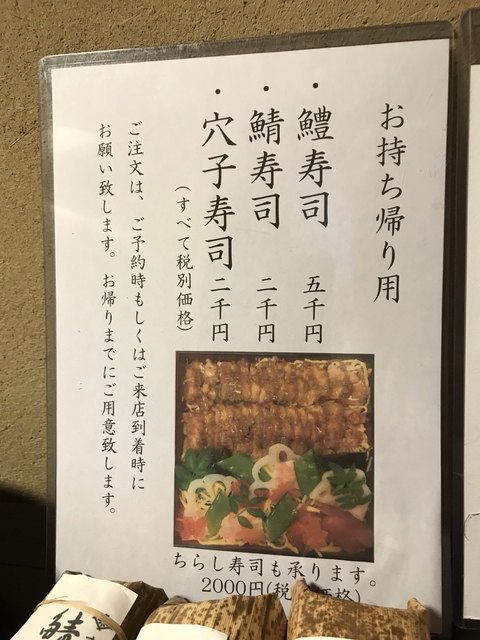 お持ち帰り用
・鱧寿司 五千円
・鯖寿司 二千円
・穴子寿司 二千円
(すべて税別価格)
ご注文は、ご予約時もしくはご来店到着時に
お願い致します。お帰りまでにご用意致します。
ちらし寿司も承ります。
2000円(税別価格)
鯖